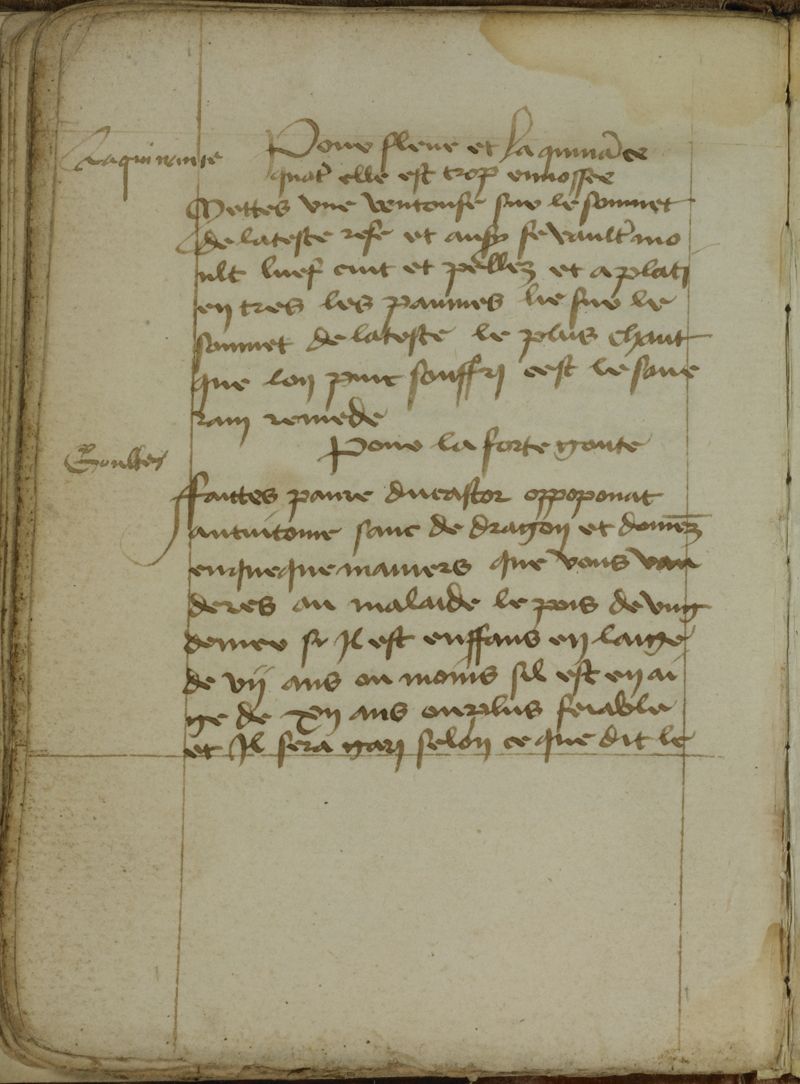 Pour fleue et la quinace
quat elle est trop enuossee
Mettes vne ventouse sur le sommet
de lateste rese et aussy se vault mo
ult luef cuit et pellez et a plati
en tres les paumes lie sur le
sommet de lateste le plus chaut
que lon puit souffry cest le soue
rain remede
Goultes
Pour la forte goute
ffaittes paure ducastor oppoponat
antuitome sanc de dragon et donnez
enqueque maniers que vous van
deres au malaide le pois de vng
denier se Il est enffans en laige
de vij ans ou moins sil est en ai
ge de xij ans ouplus
et Il sera gari selon ce que dit le